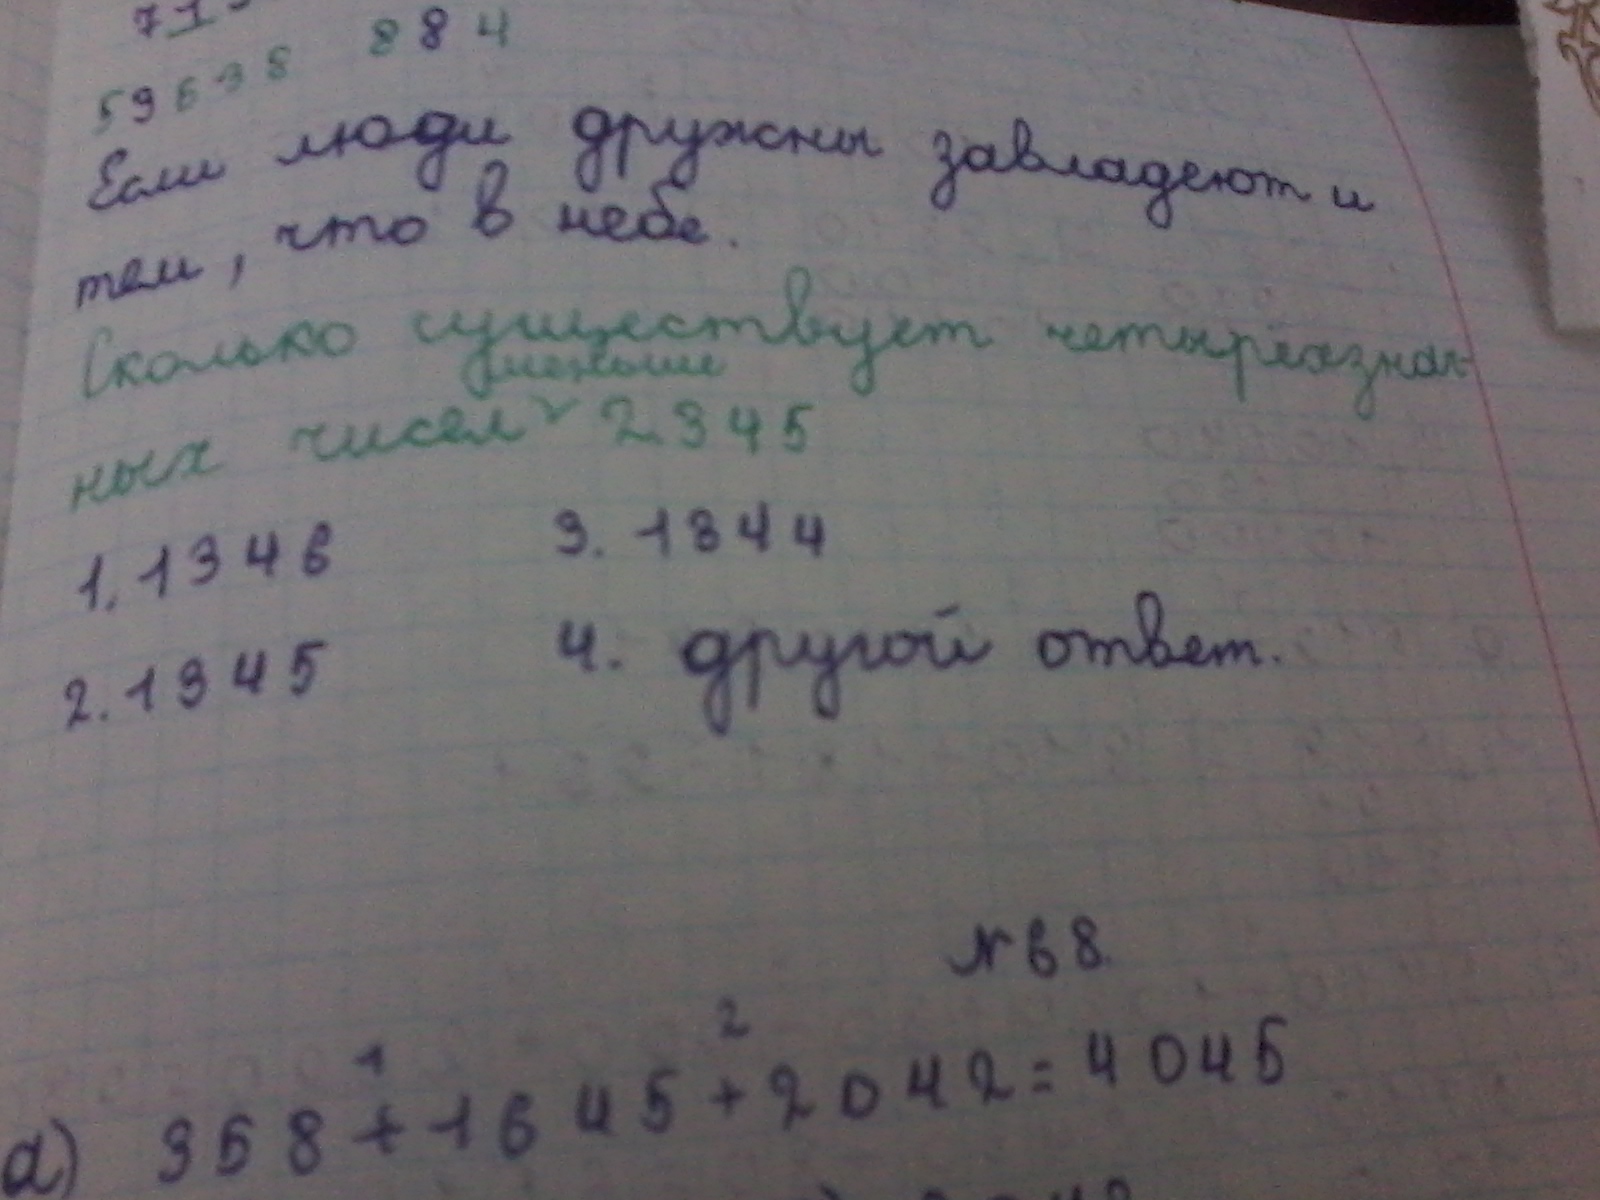 71
59638 884
Если люди дружны завладеют и
тем, что в небе.
Сколько существует четырёхзнач-
меньше
ных чисел 2345
1. 1346 3. 1344
2. 1345 4. другой ответ.
№68.
1 2
а) 358+1645+2042=4045